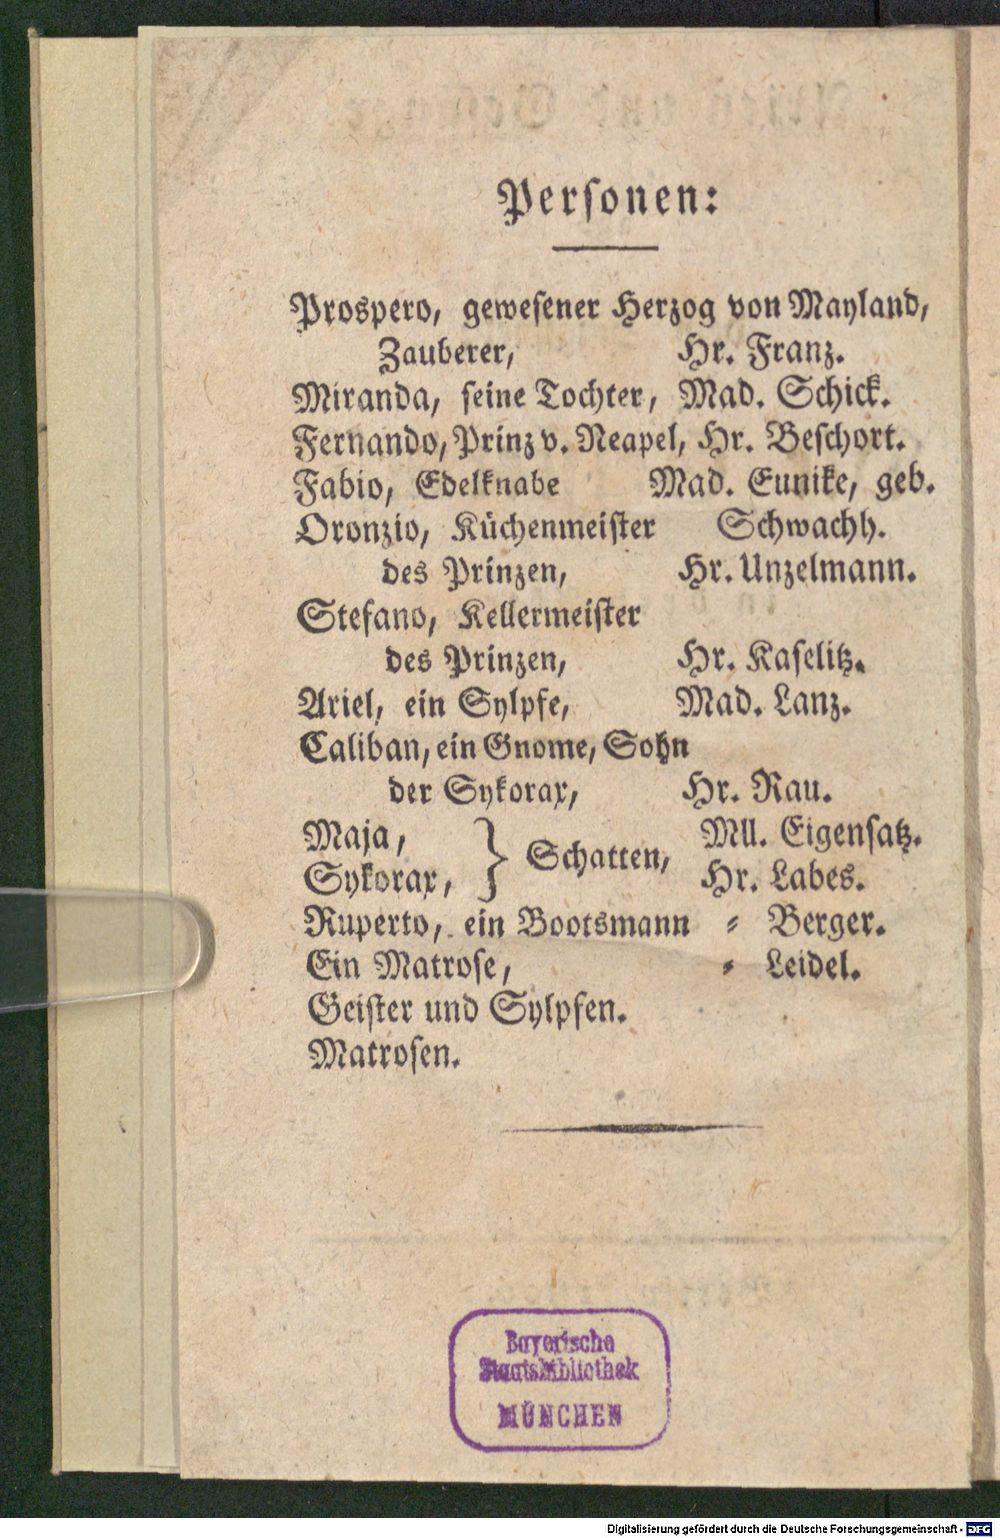 Personen:
Prospero, gewesener Herzog von Mayland,
Zauberer, Hr. Franz.
Miranda, seine Tochter, Mad. Schick.
Fernando, Prinz v. Neapel, Hr. Beschort.
Fabio, Edelknabe Mad. Eunike, geb.
Oronzio, Küchenmeister Schwachh.
des Prinzen, Hr. Unzelmann.
Stefano, Kellermeister
des Prinzen, Hr. Kaselitz.
Ariel, ein Sylpfe, Mad. Lanz.
Caliban, ein Gnome, Sohn
der Sykorax, Hr. Rau.
Maja, } Schatten, Mll. Eigensatz.
Sykorax, Hr. Labes.
Ruperto, ein Bootsmann = Berger.
Ein Matrose, = Leidel.
Geister und Sylpfen.
Matrosen.
Bayerische
Staatsbibliothek
MÜNCHEN
Digitalisierung gefördert durch die Deutsche Forschungsgemeinschaft - DFG